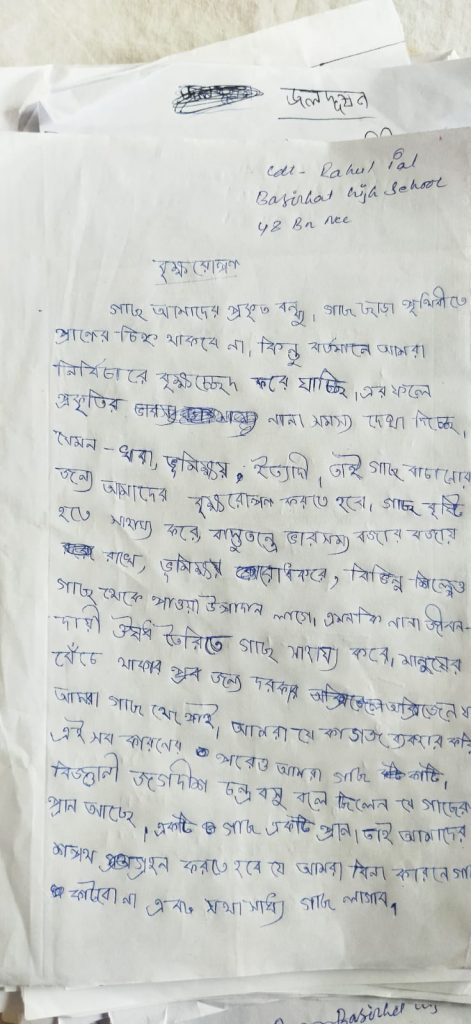 জলদূষন
cdt- Rahul Pal
Basirhat high school
48 Bn ncc
বৃক্ষরোপণ
গাছ আমাদের প্রকৃত বন্ধু, গাছ ছাড়া পৃথিবীতে
প্রাণের চিহ্ন থাকবে না, কিন্তু বর্তমানে আমরা
নির্বিচারে বৃক্ষচ্ছেদ করে যাচ্ছি, এর ফলে
প্রকৃতির নানা সমস্য দেখা দিচ্ছে,
যেমন - খরা, ভূমিক্ষয়, ইত্যাদী, তাই গাছ বাচানোর
জন্যে আমাদের বৃক্ষরোপণ করতে হবে, গাছ বৃষ্টি
হতে সাহায্য করে, বাস্তুতন্ত্রে ভারসম্য বজার বজায়
রাখে, ভূমিক্ষয় রোধকরে, বিভিন্ন শিল্পেও
গাছ থেকে পাওয়া উপাদান লাগে, এমনকি নানা জীবন-
দায়ী ঔষধি তৈরিতে গাছ সাহায্য করে, মানুষের
বেঁচে থাকার জন্য দরকার অক্সিজেন
আমরা গাছ থেকে পাই, আমরা যে কাগজ ব্যবহার করি
এই সব কারনের পরেও আমরা গাছ কাটি,
বিজ্ঞানী জগদীশ চন্দ্র বসু বলে ছিলেন যে গাছের
প্রান আছে, একটি গাছ একটি প্রান, তাই আমাদের
শপথ গ্রহন করতে হবে যে আমরা বিনা কারনে
কাটবো না এবং যথা সাধ্য গাছ লাগাব,
Basirhat